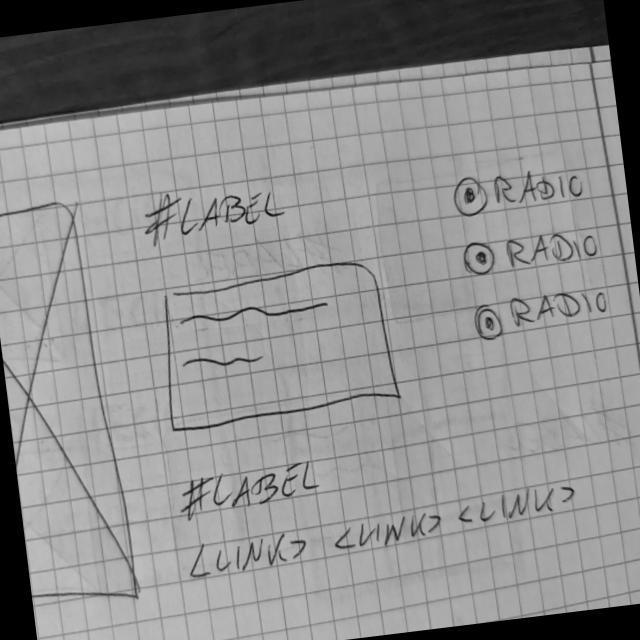 #LABEL
RADIO
RADIO
RADIO
#LABEL
<LINK> <LINK> <LINK>